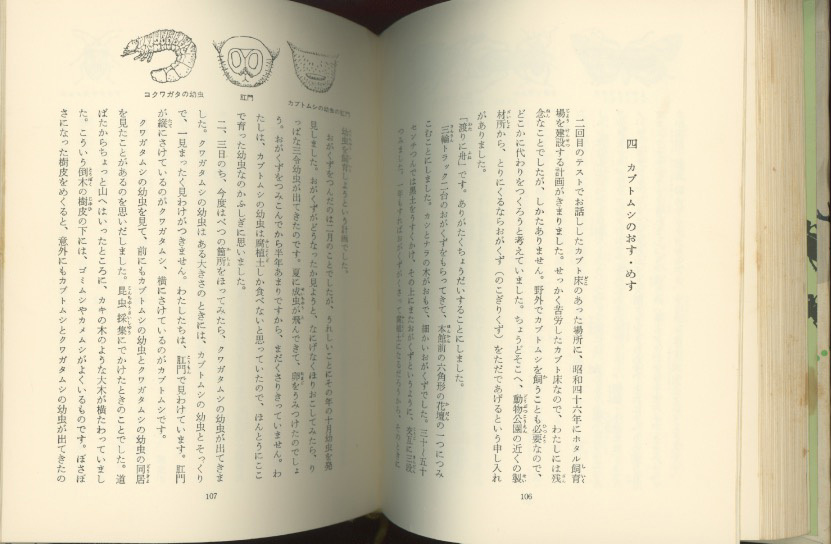 四　カブトムシのおす・めす
二回目のテストでお話ししたカブト床のあった場所に、昭和四十六年にホタル飼育
場を建設する計画がきまりました。せっかく苦労したカブト床なので、わたしには残
念なことでしたが、しかたありません。野外でカブトムシを飼うことも必要なので、
どこかに代わりをつくろうと考えていました。ちょうどそこへ、動物公園の近くの製
材所から、とりにくるならおがくず（のこぎりくず）をただであげるという申し入れ
がありました。
「渡りに舟」です。ありがたくちょうだいすることにしました。
三輪トラック二台のおがくずをもらってきて、本館前の六角形の花壇の一つにつみ
こむことにしました。カシとナラの木がおもで、細かいおがくずでした。三十〜五十
センチつんでは黒土をうすくかけ、その上にまたおがくずというように、
106
幼虫を飼育しようという計画でした。
おがくずをつんだのは二月のことでしたが、うれしいことにその年の十月幼虫を発
見しました。おがくずがどうなったか見ようと、なにげなくほりおこしてみたら、り
っぱな三令幼虫が出てきたのです。夏に成虫が飛んできて、卵をうみつけたのでしょ
う。おがくずをつみこんでから半年あまりですから、まだくさりきっていません。わ
たしは、カブトムシの幼虫は腐植土しか食べないと思っていたので、ほんとうにここ
で育った幼虫なのかふしぎに思いました。
二、三日のち、今度はべつの箇所をほってみたら、クワガタムシの幼虫が出てきま
した。クワガタムシの幼虫はある大きさのときには、カブトムシの幼虫とそっくり
で、一見まったく見わけがつきません。わたしたちは、肛門で見わけています。肛門
が縦にさけているのがクワガタムシ、横にさけているのがカブトムシです。
クワガタムシの幼虫を見て、前にもカブトムシの幼虫とクワガタムシの幼虫の同居
を見たことがあるのを思いだしました。昆虫採集にでかけたときのことでした。道
ばたからちょっと山へはいったところに、カキの木のような大木が横たわっていまし
た。こういう倒木の樹皮の下には、ゴミムシやカメムシがよくいるものです。ぼさぼ
さになった樹皮をめくると、意外にもカブトムシとクワガタムシの幼虫が出てきたの
カブトムシの幼虫の肛門
肛門
コクワガタの幼虫
107